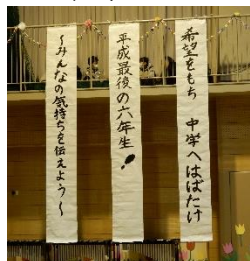 希望をもち 中学へはばたけ
平成最後の六年生!
～みんなの気持ちを伝えよう～